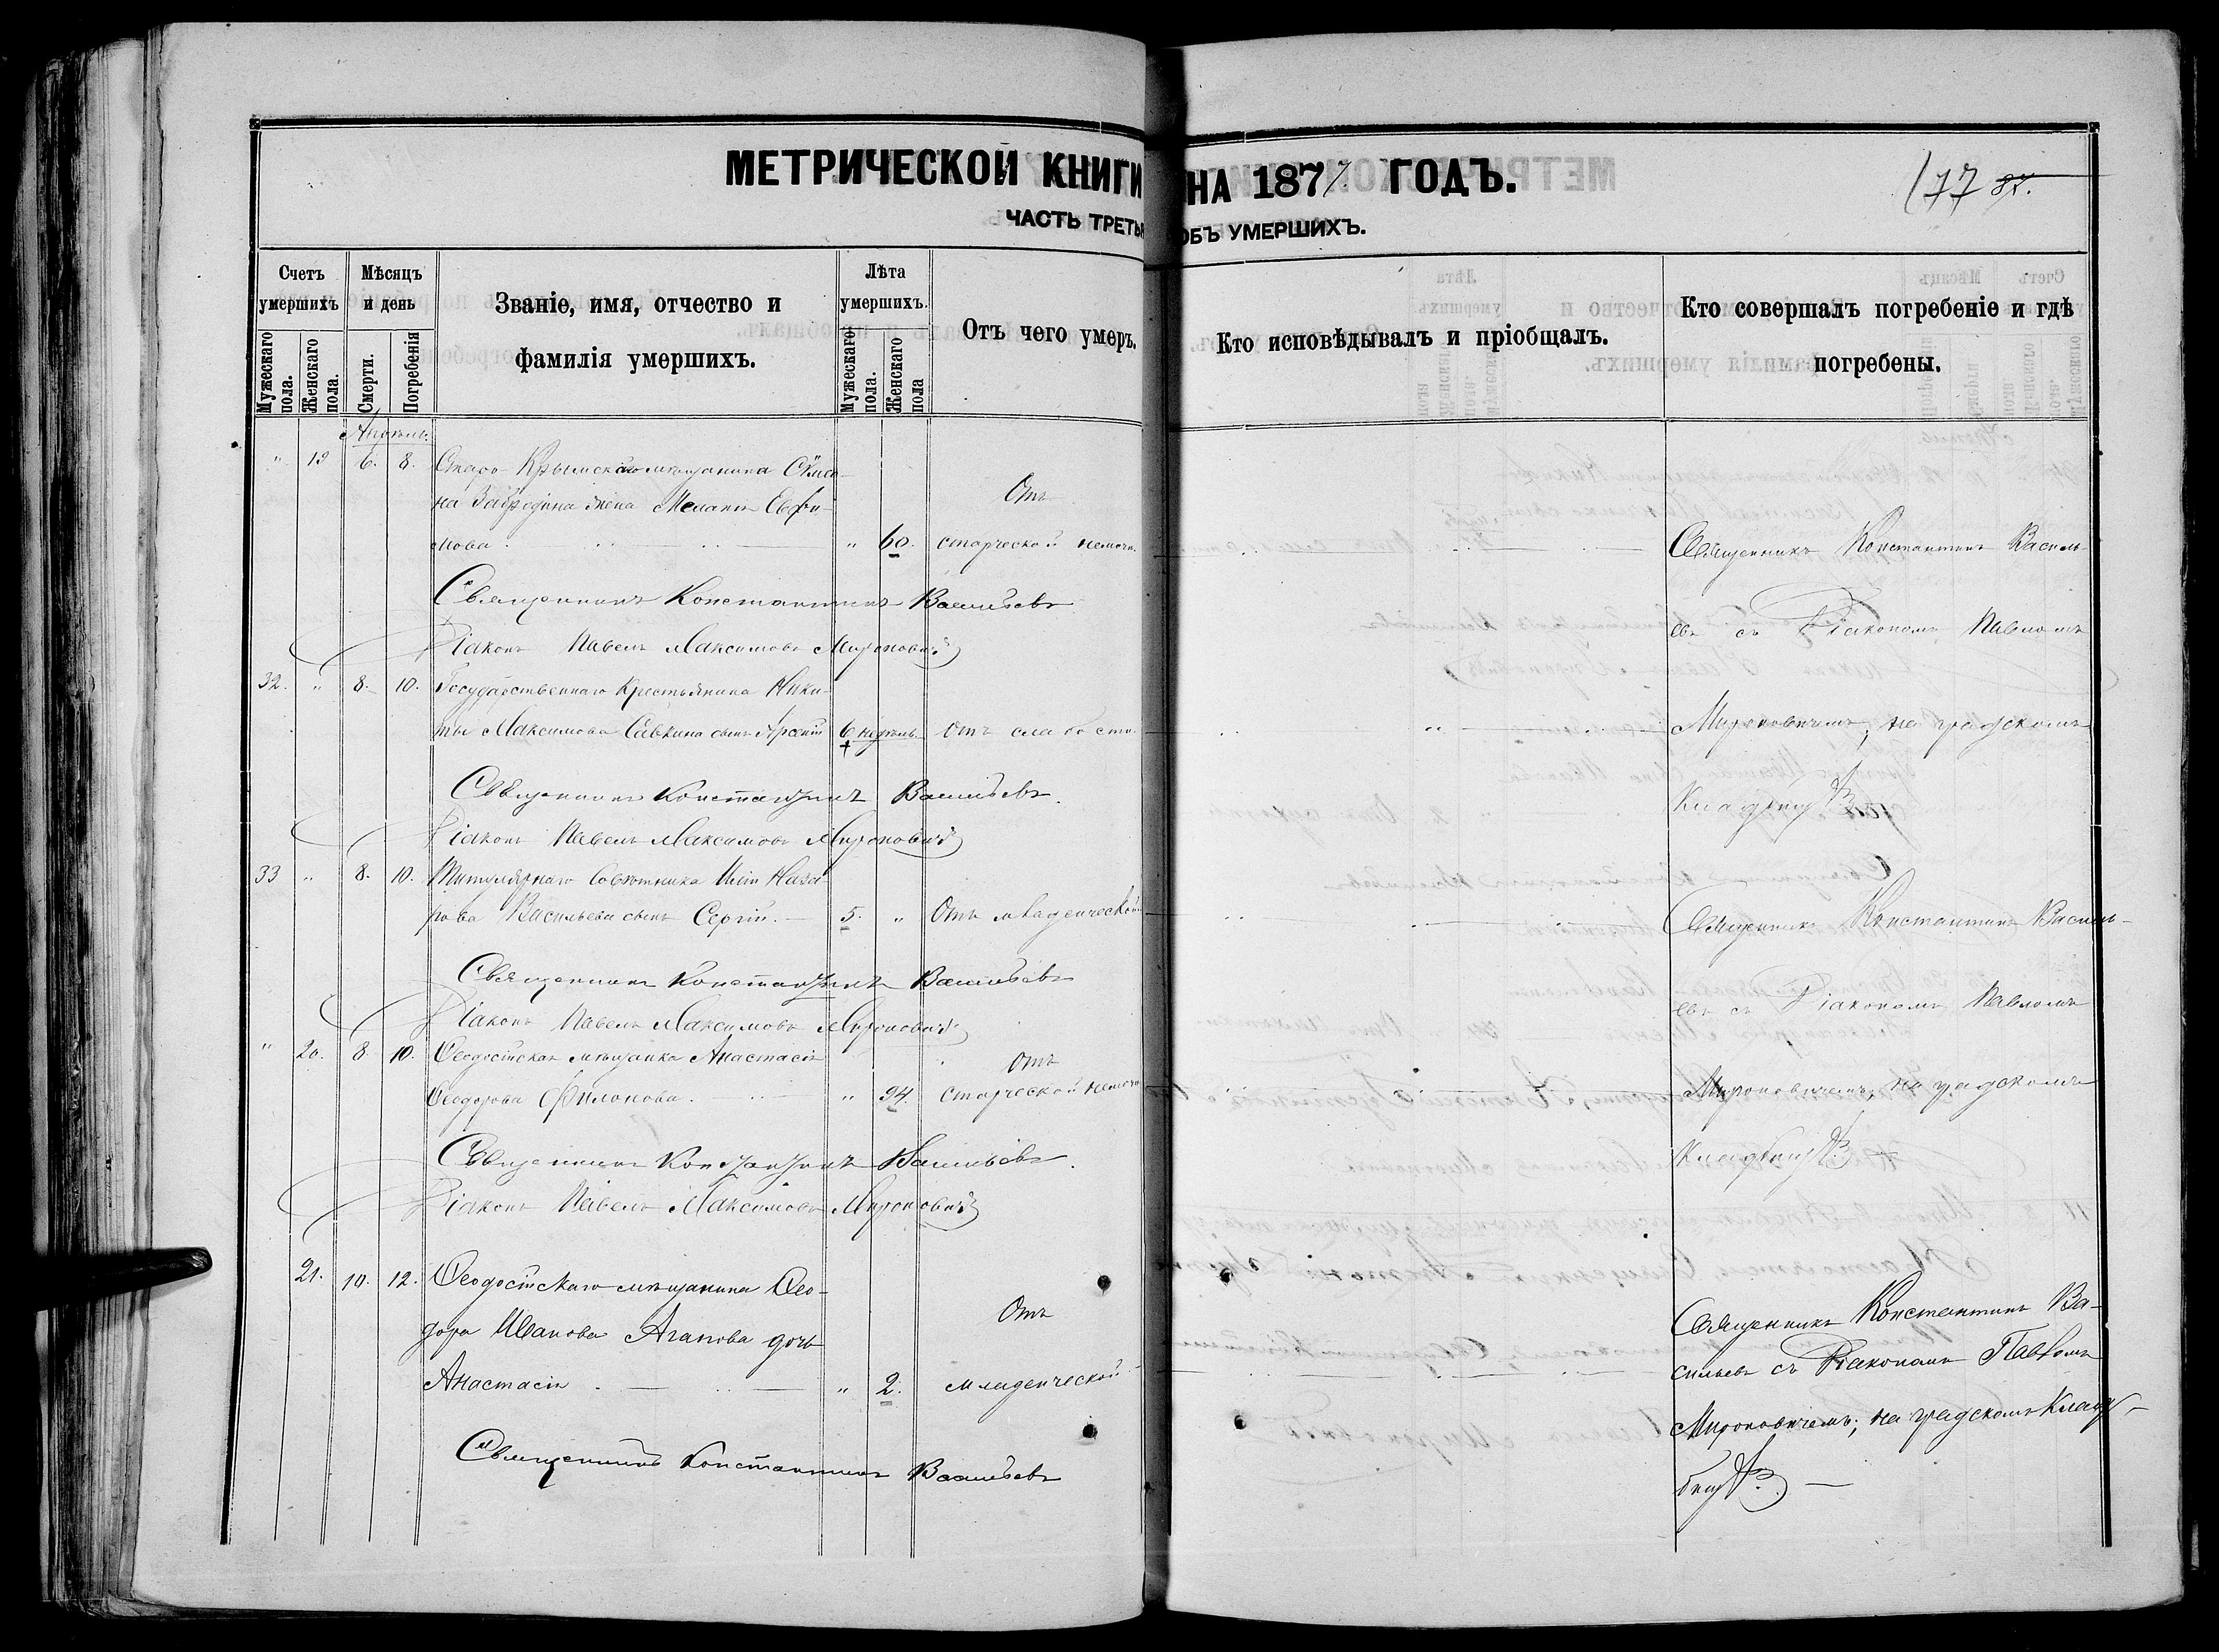 МЕТРИЧЕСКОЙ КНИГИ НА 1877 ГОДЪ.
177 87.
ЧАСТЬ ТРЕТЬЯ ОБЪ УМЕРШИХЪ.
Счетъ умершихъ
Мужескаго пола.
Женскаго пола.
Мѣсяцъ и день
Смерти.
Погребенія
Званіе, имя, отчество и фамилія умершихъ.
Лѣта умершихъ.
Мужескаго пола.
Женскаго пола
Отъ чего умеръ.
Кто исповѣдывалъ и пріобщалъ.
Кто совершалъ погребеніе и гдѣ погребены.
Апрѣль.
" 19 6. 8. Старо-Крымскаго мѣщанина Симо-
на Забродина жена Меланія Евфи-
мова. " 60.
Отъ
старческой немощи
Священникъ Константинъ Василь-
евъ съ Діакономъ Павломъ
Мироновичемъ, на градскомъ
Священникъ Константинъ Васильевъ
Діаконъ Павелъ Максимовъ Мироновичъ
32. " 8. 10. Государственнаго Крестьянина Ники-
ты Максимова Савкина сынъ Арсеній 6 недѣль отъ слабости
Священникъ Константинъ Васильевъ.
Діаконъ Павелъ Максимовъ Мироновичъ
33 " 8. 10. Титулярнаго Совѣтника Наза-
рова Васильева сынъ Сергій. 5. " Отъ младенческой
Священникъ Константинъ Василь-
евъ съ Діакономъ Павломъ
Мироновичемъ, на градскомъ
Священникъ Константинъ Васильевъ
Діаконъ Павелъ Максимовъ Мироновичъ
" 20. 8. 10. Ѳеодосійская мѣщанка Анастасія
Ѳеодорова Филонова. " 94.
Отъ
старческой немощи
Священникъ Константинъ Васильевъ.
Діаконъ Павелъ Максимовъ Мироновичъ
21. 10. 12. Ѳеодосійскаго мѣщанина Ѳео-
дора Иванова Агапова дочь
Анастасія " 2.
Отъ
младенческой
Священникъ Константинъ Ва-
сильевъ съ Діакономъ Павломъ
Мироновичемъ; на градскомъ клад-
бищѣ.
Священникъ Константинъ Васильевъ